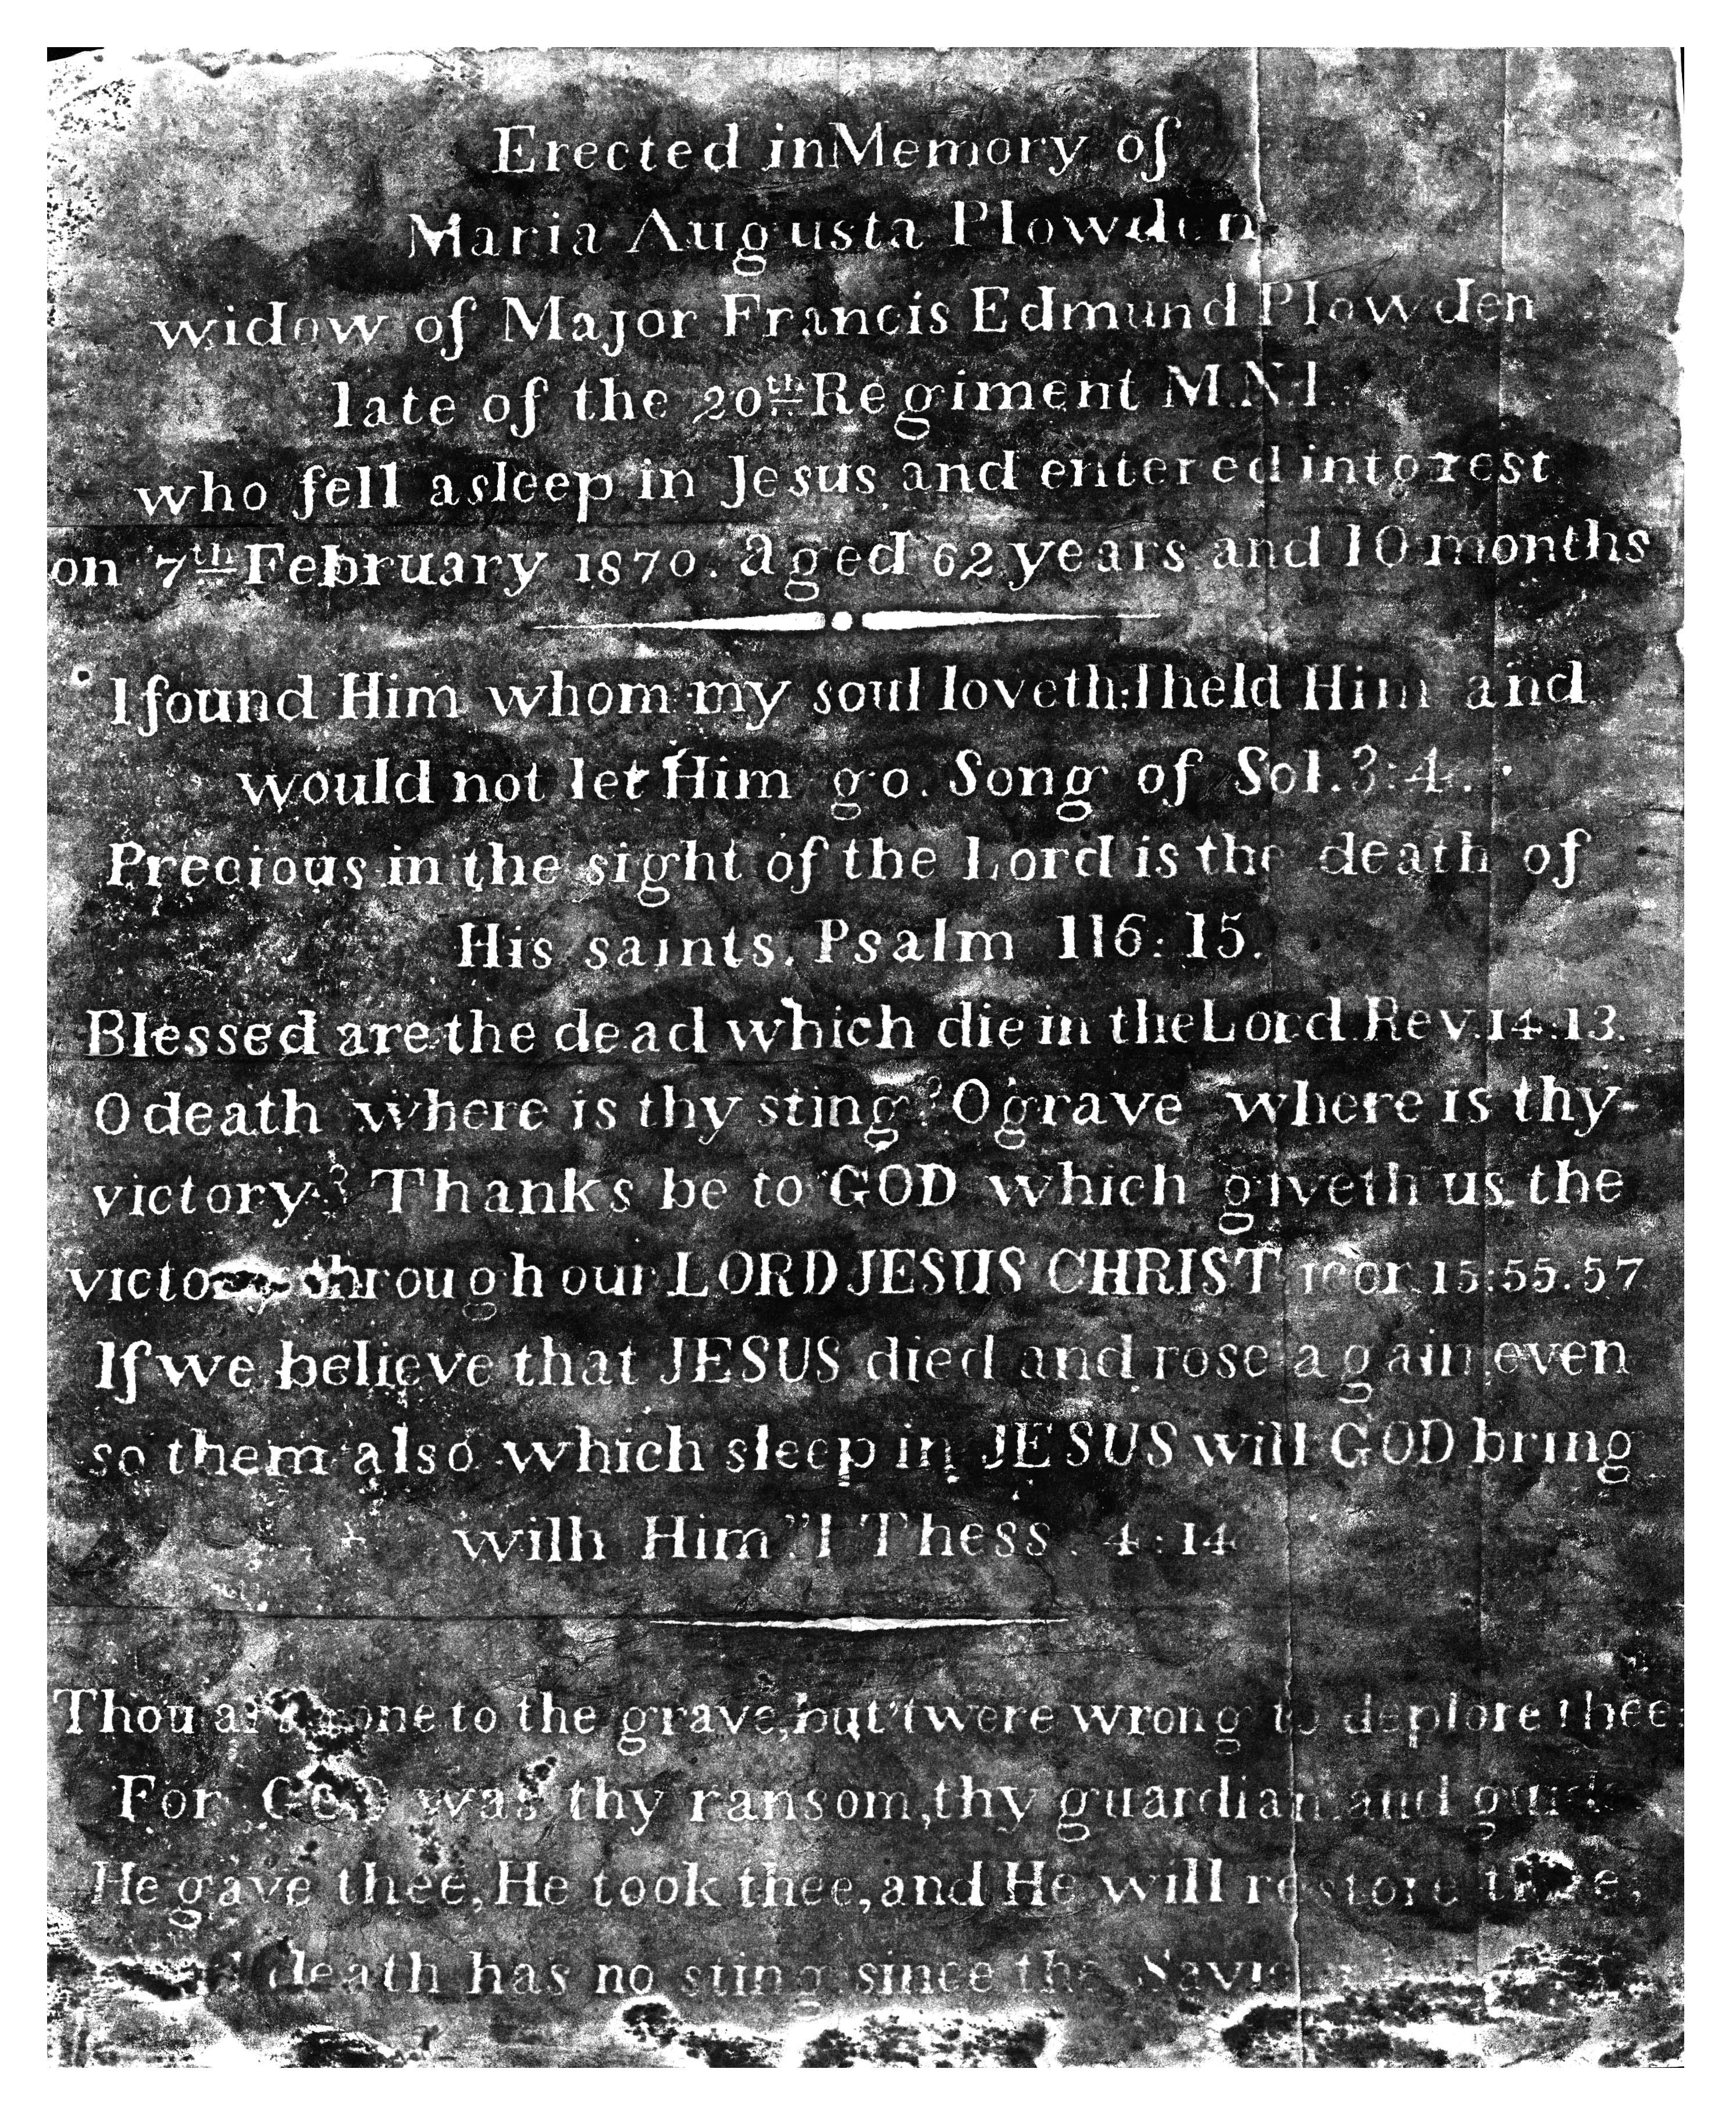 Erected in Memory of
Maria Augusta Plowden
widow of Major Francis Edmund Plowden
late of the 20th Regiment M.N.I.
who fell asleep in Jesus and entered into rest
on 7th February 1870. aged 62 years and 10 months
I found Him whom my soul loveth: I held Him and
would not let Him go. Song of Sol. 3:4.
Precious in the sight of the Lord is the death of
His saints. Psalm 116:15.
Blessed are the dead which die in the Lord. Rev. 14:13.
O death where is thy sting? O grave where is thy
victory? Thanks be to GOD which giveth us the
victory through our LORD JESUS CHRIST 1 cor. 15:55.57
If we believe that JESUS died and rose again even
so them also which sleep in JESUS will GOD bring
wilh Him" 1 Thess. 4:14
Thou art gone to the grave, but 'twere wrong to deplore thee
For GOD was thy ransom, thy guardian and guide
He gave thee, He took thee, and He will restore thee,
death has no sting since the